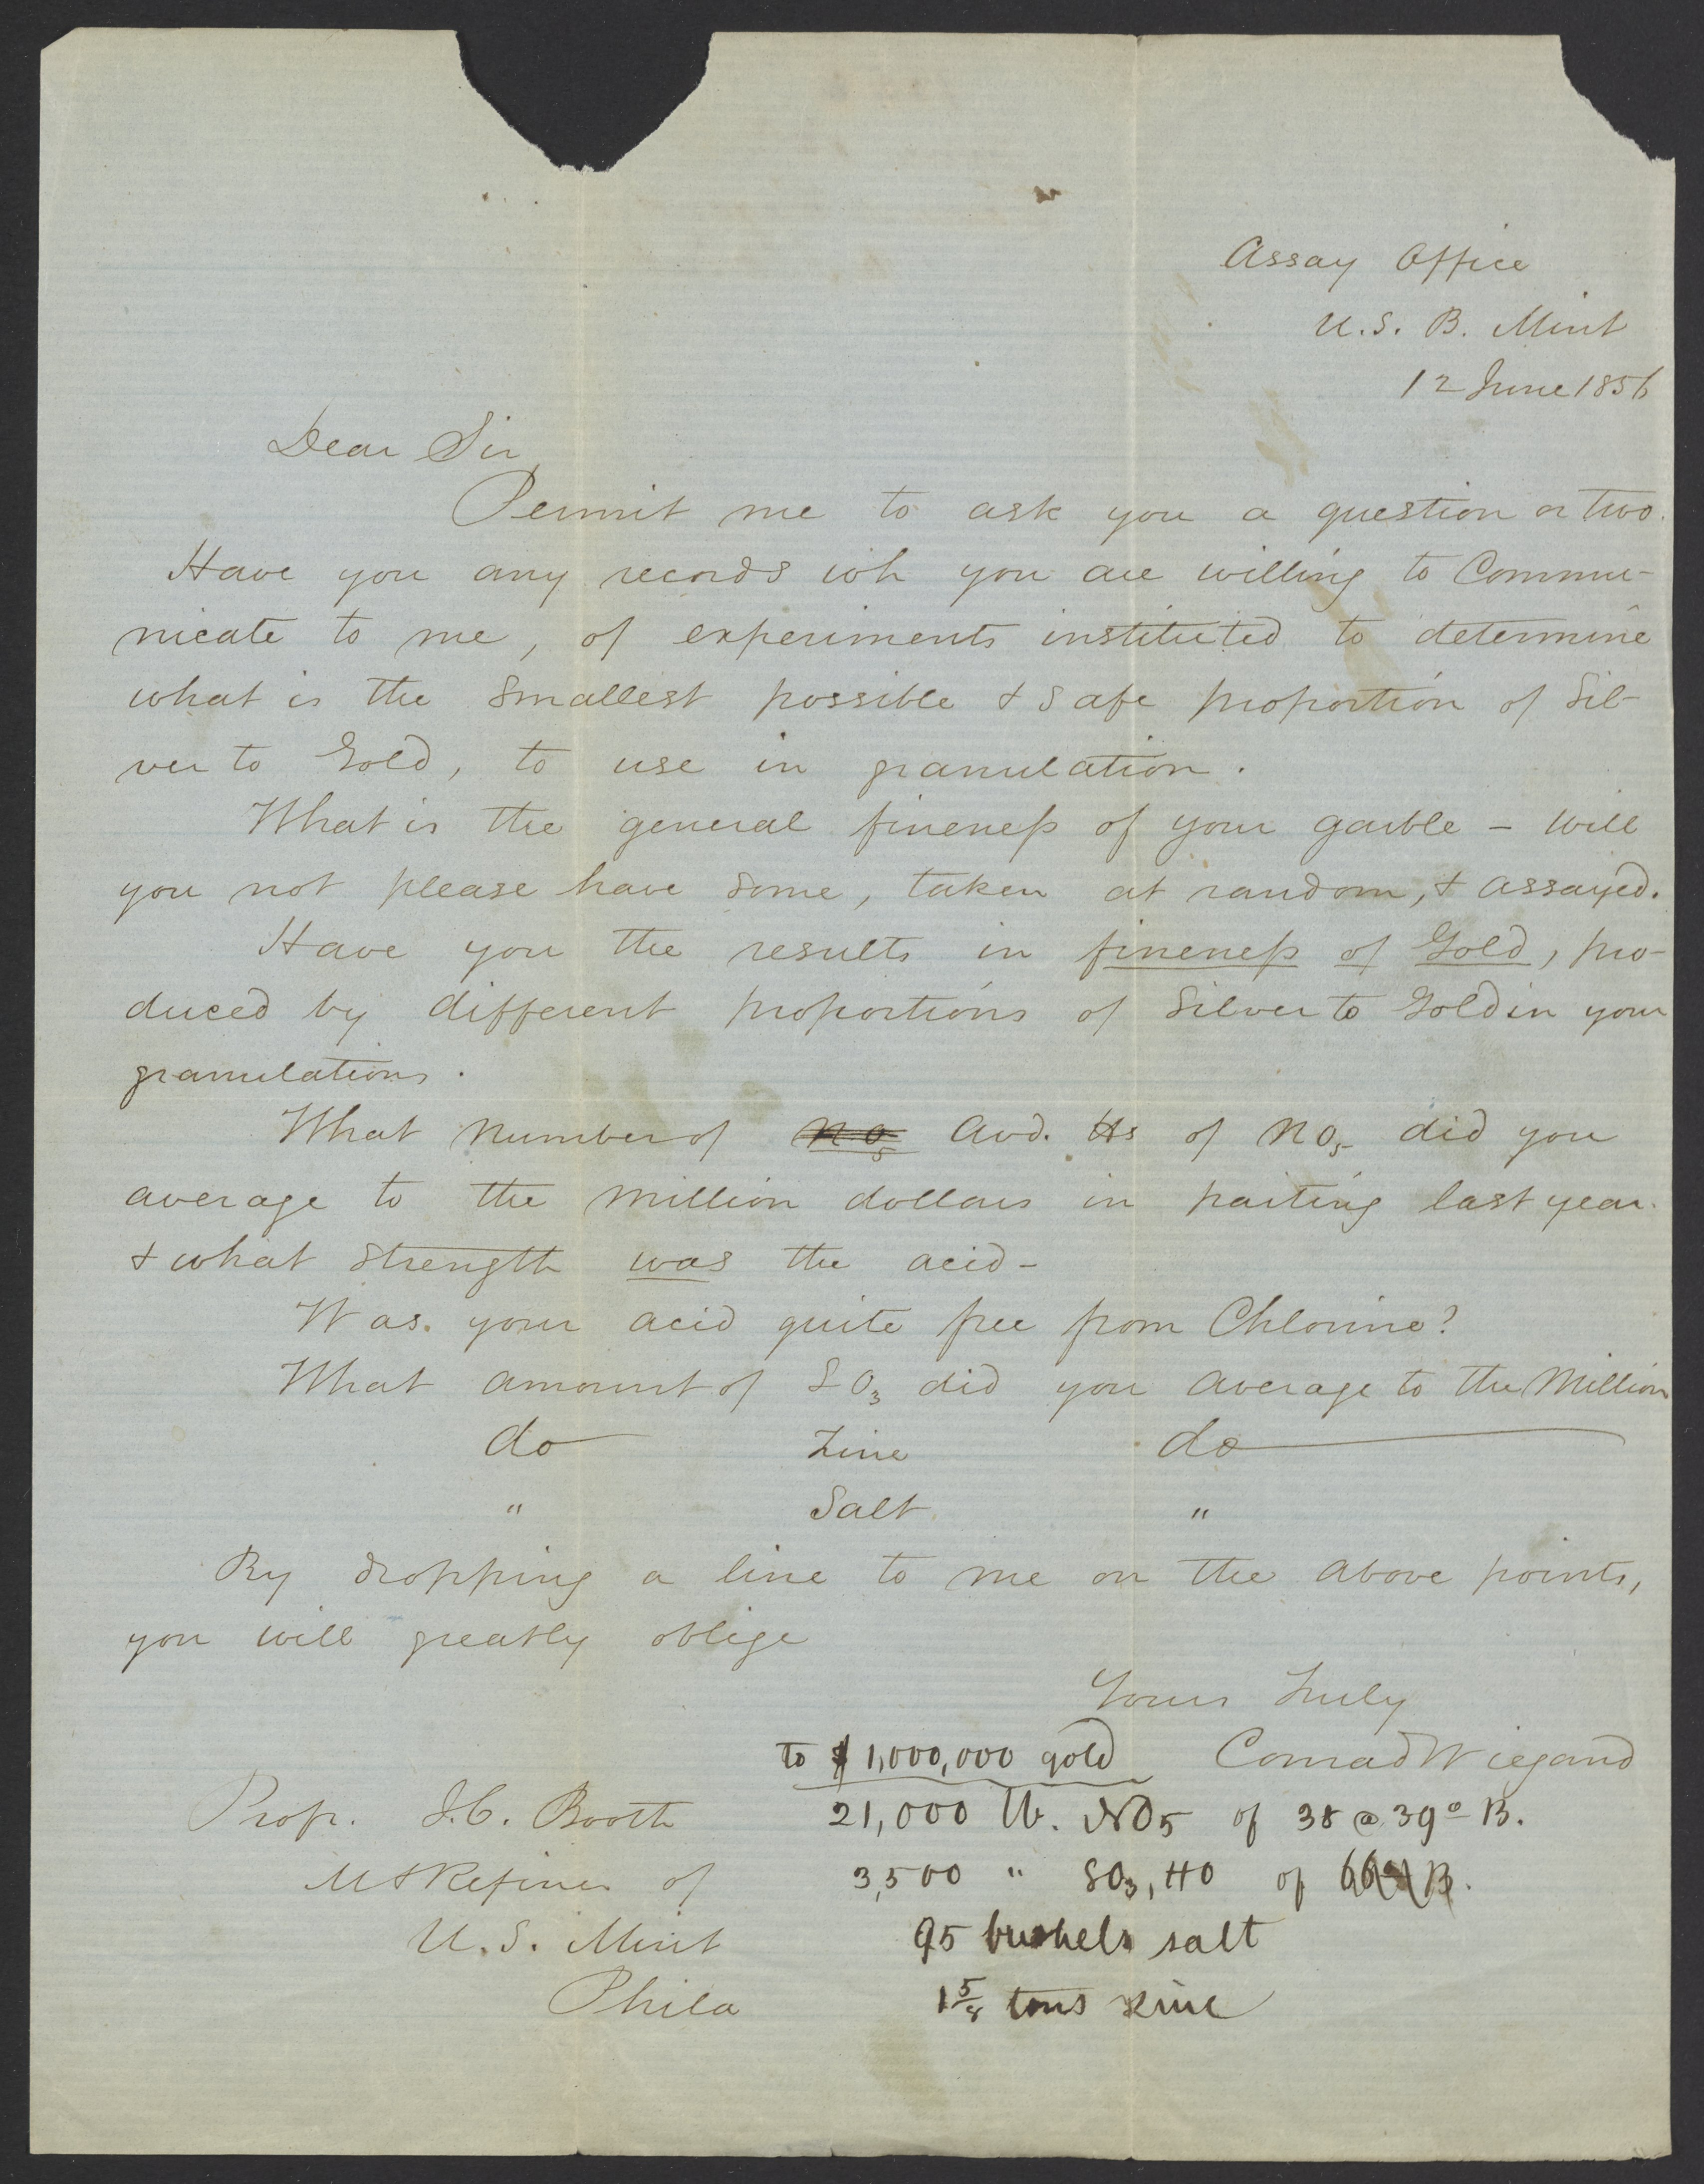 Assay Office
U.S. B. Mint
12 June 1856
Dear Sir,
Permit me to ask you a question or two.
Have you any records wh you are willing to Commu-
nicate to me, of experiments instituted to determine
what is the smallest possible & safe proportion of Sil-
ver to Gold, to use in granulation.
What is the general fineness of your garble – Will
you not please have some, taken at random, & assayed.
Have you the results in fineness of Gold, pro-
duced by different proportions of Silver to Gold in your
granulations.
What Number of NO5 Avd. lbs of NO5 did you
average to the Million dollars in parting last year.
& what strength was the acid–
Was your acid quite free from Chlorine?
What amount of SO3 did you average to the Million
do Zinc do
" Salt "
By dropping a line to me on the above points,
you will greatly oblige
Yours Truly
Conrad Wiegand
Prof. J.C. Booth
M & Refiner of
U.S. Mint
Phila
to $1,000,000 gold
21,000 lb. NO5 of 38 @ 39° B.
3,500 " SO3, HO of 66° B.
95 bushels salt
1 5/8 tons zinc